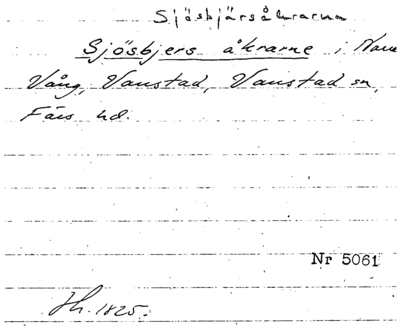 Sjösbjärsåkrarna
Sjösbjers åkrarne i Norre
Vång, Vanstad, Vanstad sn,
Färs hd.
Nr 5061
Hh. 1825.